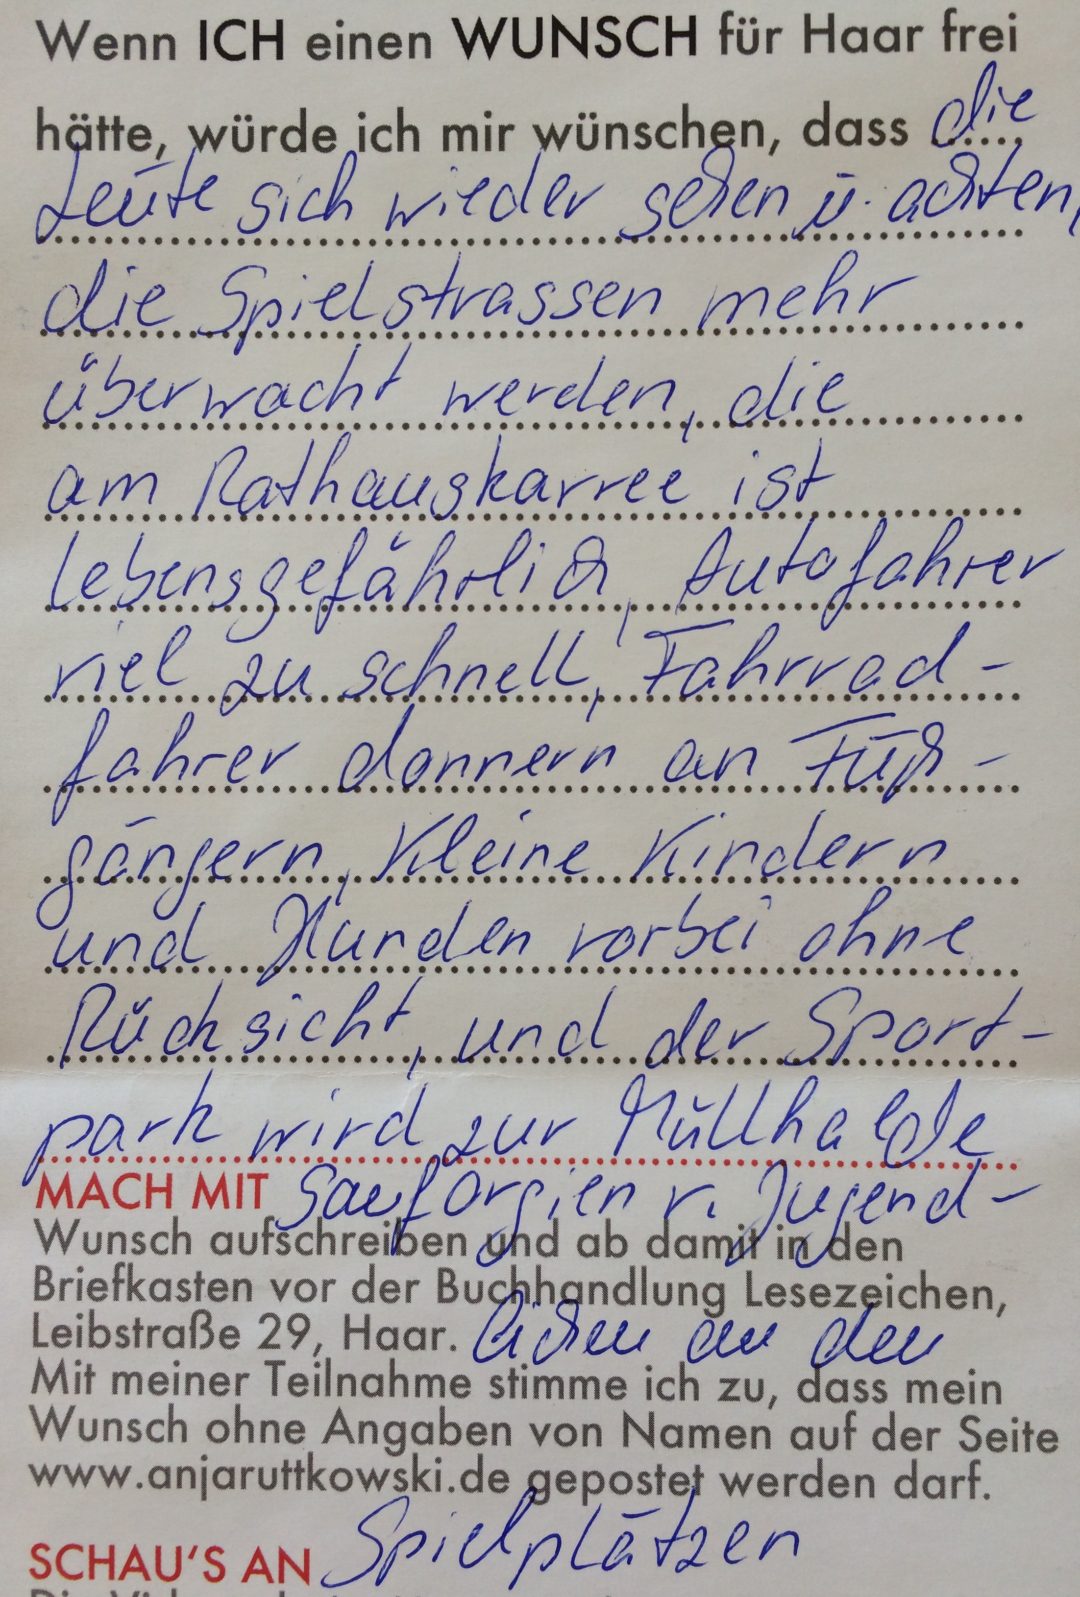 Wenn ICH einen WUNSCH für Haar frei
hätte, würde ich mir wünschen, dass die
Leute sich wieder sehen u. achten,
die Spielstrassen mehr
überwacht werden, die
am Rathauskarree ist
lebensgefährlich, Autofahrer
viel zu schnell, Fahrrad-
fahrer donnern an Fuß-
gängern, Kleine Kindern
und Hunden vorbei ohne
Rücksicht, und der Sport-
park wird zur Müllhalde
MACH MIT Sauforgien v. Jugend-
Wunsch aufschreiben und ab damit in den
Briefkasten vor der Buchhandlung Lesezeichen,
Leibstraße 29, Haar. lichen an den
Mit meiner Teilnahme stimme ich zu, dass mein
Wunsch ohne Angaben von Namen auf der Seite
www.anjaruttkowski.de gepostet werden darf.
SCHAU'S AN Spielplätzen